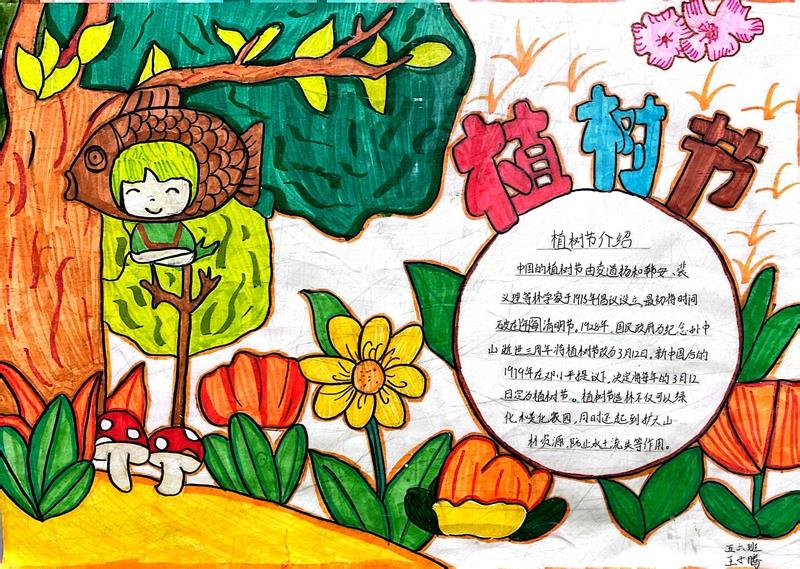 植树节
植树节介绍
中国的植树节由凌道扬和韩安、裴
义理等林学家于1915年倡议设立,最初将时间
确定在每年清明节。1928年,国民政府为纪念孙中
山逝世三周年将植树节改为3月12日。新中国后的
1979年在邓小平提议下,决定将每年的3月12
日定为植树节。植树节造林不仅可以绿
化木美化家园,同时还起到扩大山
林资源,防止水土流失等作用。
五六班